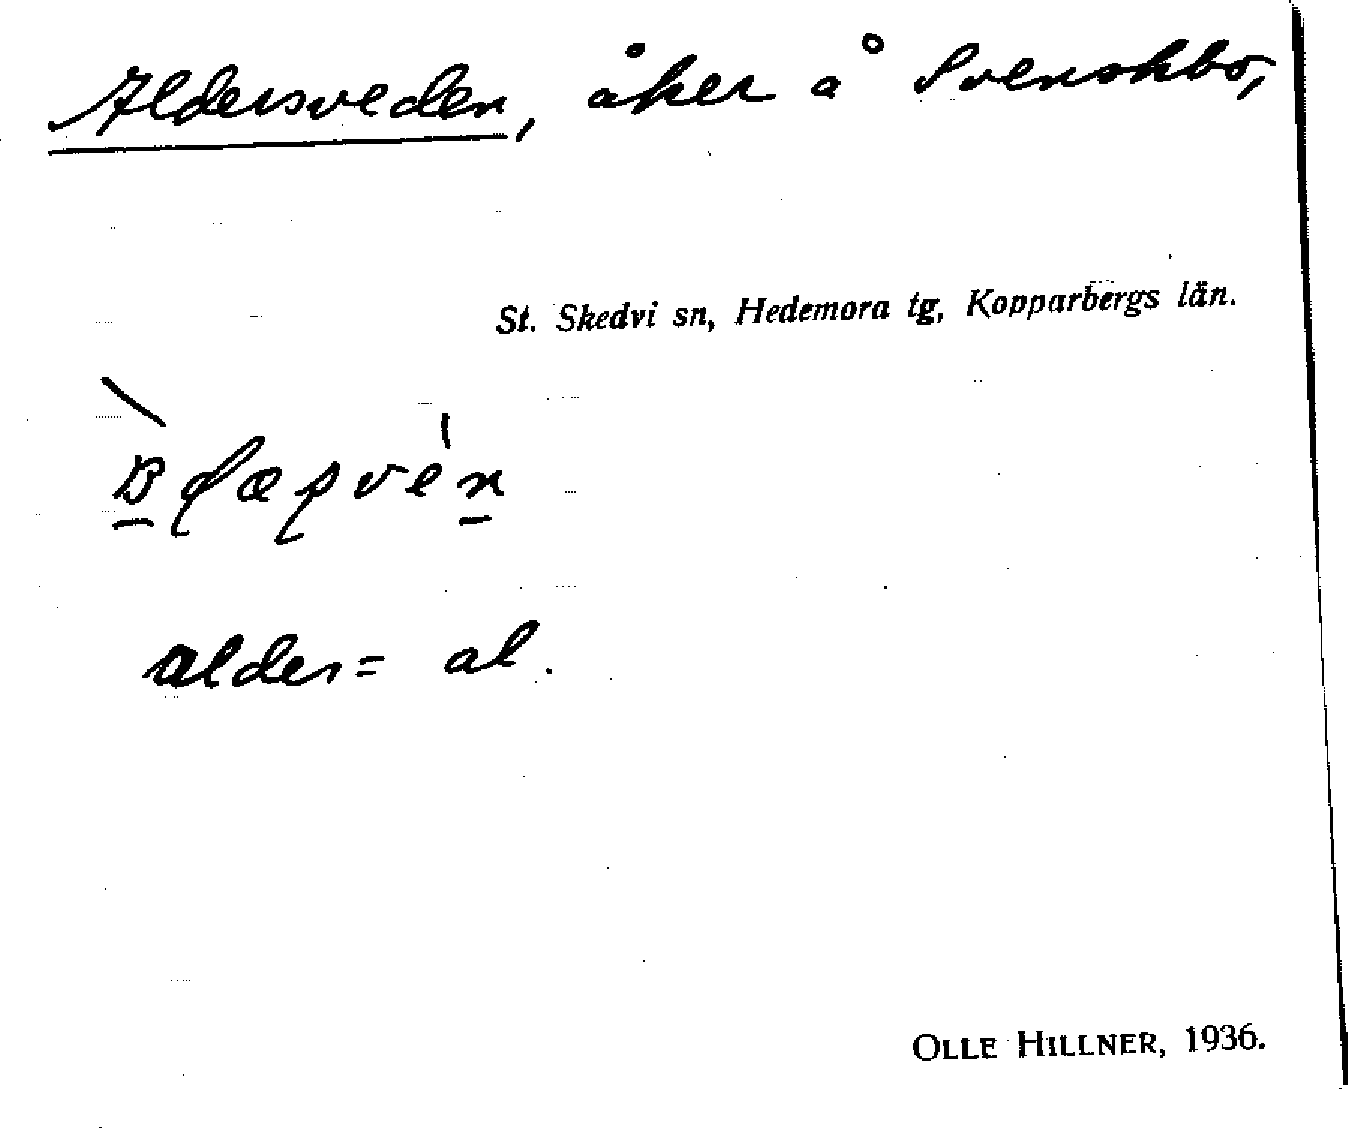 Aldersveden, åker å Svenskbo,
St. Skedvi sn, Hedemora tg, Kopparbergs län.
alder = al.
OLLE HILLNER, 1936.